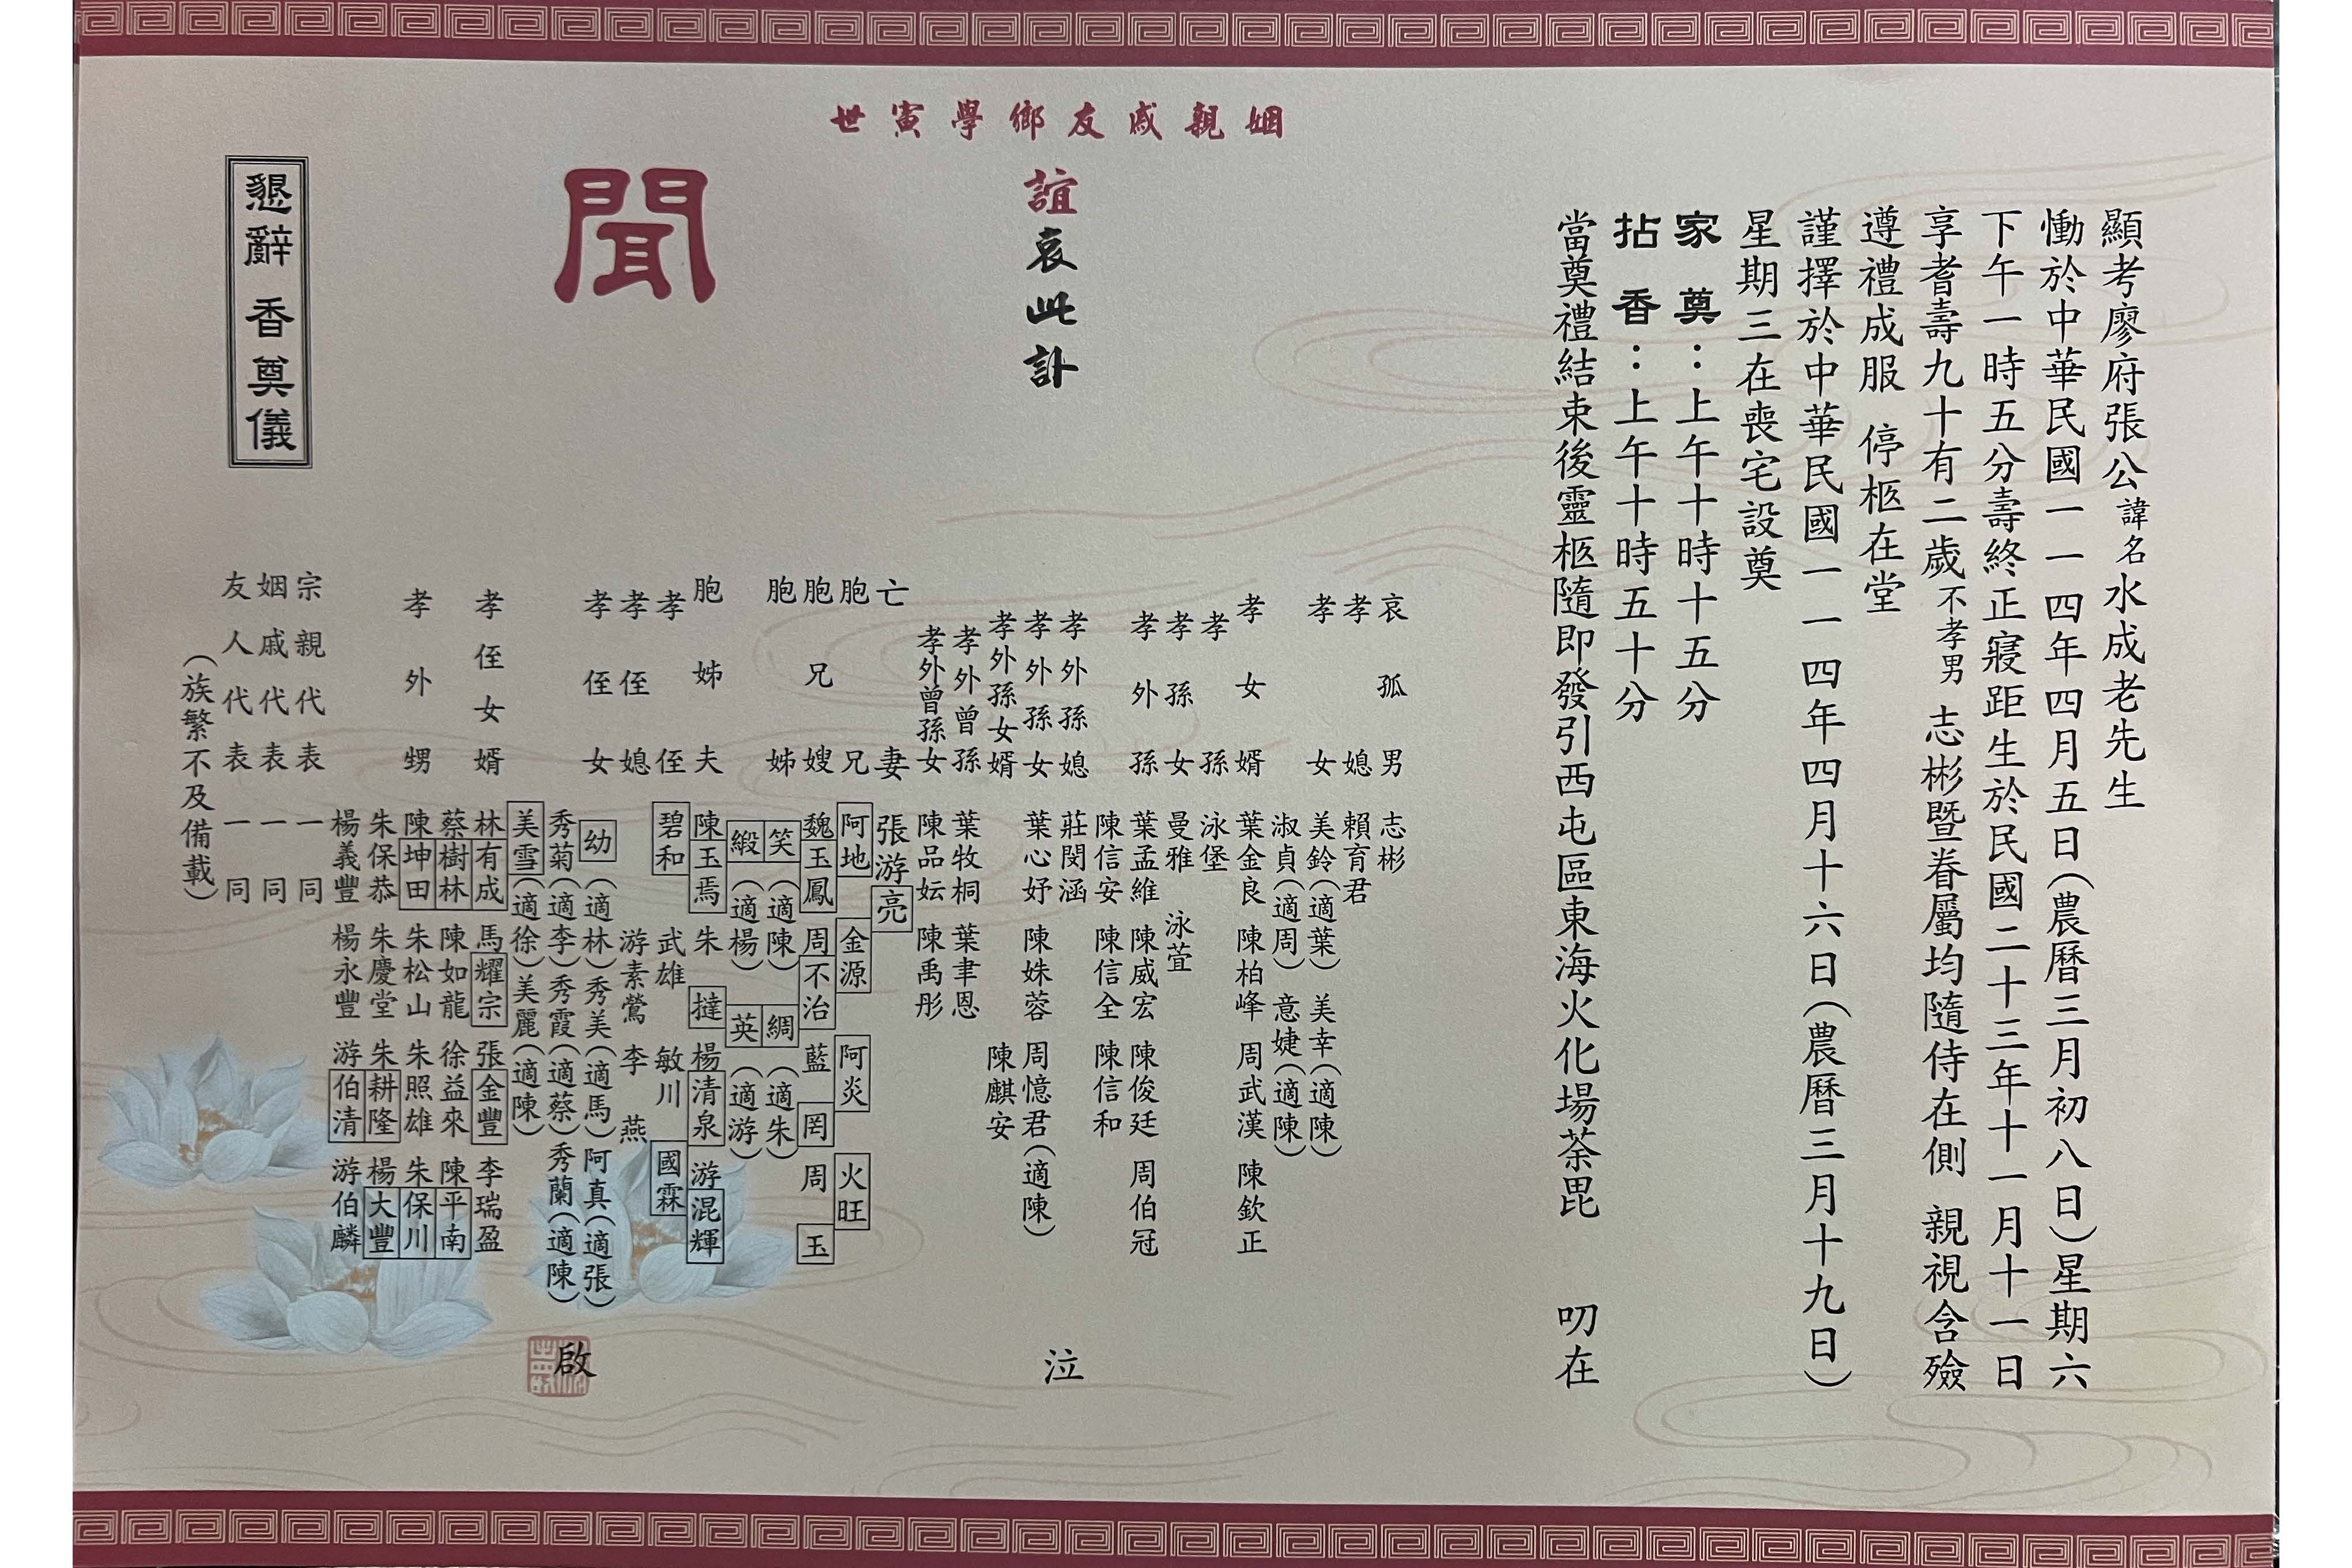 顯考廖府張公諱名水成老先生
慟於中華民國一一四年四月五日（農曆三月初八日）星期六
下午一時五分壽終正寢距生於民國二十三年十一月十一日
享耆壽九十有二歲不孝男 志彬暨眷屬均隨侍在側 親視含殮
遵禮成服 停柩在堂
謹擇於中華民國一一四年四月十六日（農曆三月十九日）
星期三在喪宅設奠
家奠：上午十時十五分
拈香：上午十時五十分
當奠禮結束後靈柩隨即發引西屯區東海火化場荼毘 叨在
姻親戚友鄉學寅世
誼哀此訃
聞
哀孤男 志彬
孝媳 賴育君
孝女 美鈴（適葉） 美幸（適陳）
淑貞（適周） 意婕（適陳）
孝女婿 葉金良 陳柏峰 周武漢 陳欽正
孝孫 泳堡
孝孫女 曼雅 泳萱
孝外孫 葉孟維 陳威宏 陳俊廷 周伯冠
陳信安 陳信全 陳信和
孝外孫媳 莊閔涵
孝外孫女 葉心妤 陳姝蓉 周憶君（適陳）
孝外孫女婿 陳麒安
孝外曾孫 葉牧桐 葉聿恩
孝外曾孫女 陳品妘 陳禹彤
泣
亡妻 張游亮
胞兄 阿地 金源 阿炎 火旺
胞兄嫂 魏玉鳳 周不治 藍罔 周玉
胞姊 笑（適陳） 綢（適朱）
緞（適楊） 英（適游）
胞姊夫 陳玉焉 朱撻 楊清泉 游混輝
孝侄 碧和 武雄 敏川 國霖
孝侄媳 游素鶯 李燕
孝侄女 幼（適林） 秀美（適馬） 阿真（適張）
秀菊（適李） 秀霞（適蔡） 秀蘭（適陳）
美雪（適徐） 美麗（適陳）
孝侄女婿 林有成 馬耀宗 張金豐 李瑞盈
蔡樹林 陳如龍 徐益來 陳平南
孝外甥 陳坤田 朱松山 朱照雄 朱保川
朱保恭 朱慶堂 朱耕隆 楊大豐
楊義豐 楊永豐 游伯清 游伯麟
宗親代表一同
姻戚代表一同
友人代表一同
（族繁不及備載）
啟
懇辭 香奠儀